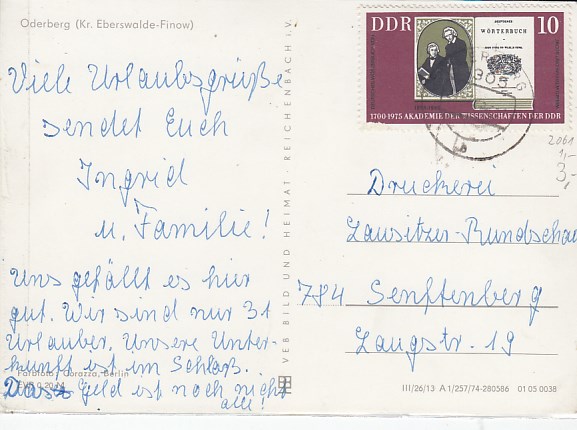 Oderberg (Kr. Eberswalde-Finow)
Viele Urlaubsgrüße
sendet Euch
Ingrid
u. Familie!
Uns gefällt es hier
gut. Wir sind nur 31
Urlauber. Unsere Unter-
kunft ist im Schloß.
Das Geld ist noch nicht
alle!
Farbfoto: Corazza, Berlin
VEB BILD UND HEIMAT · REICHENBACH i. V.
DDR
10
DEUTSCHES
WÖRTERBUCH
1700-1975 AKADEMIE DER WISSENSCHAFTEN DER DDR
2061
1,-
3,-
Druckerei
Lausitzer-Rundschau
784 Senftenberg
Langstr. 19
III/26/13 A 1/257/74-280586 01 05 0038